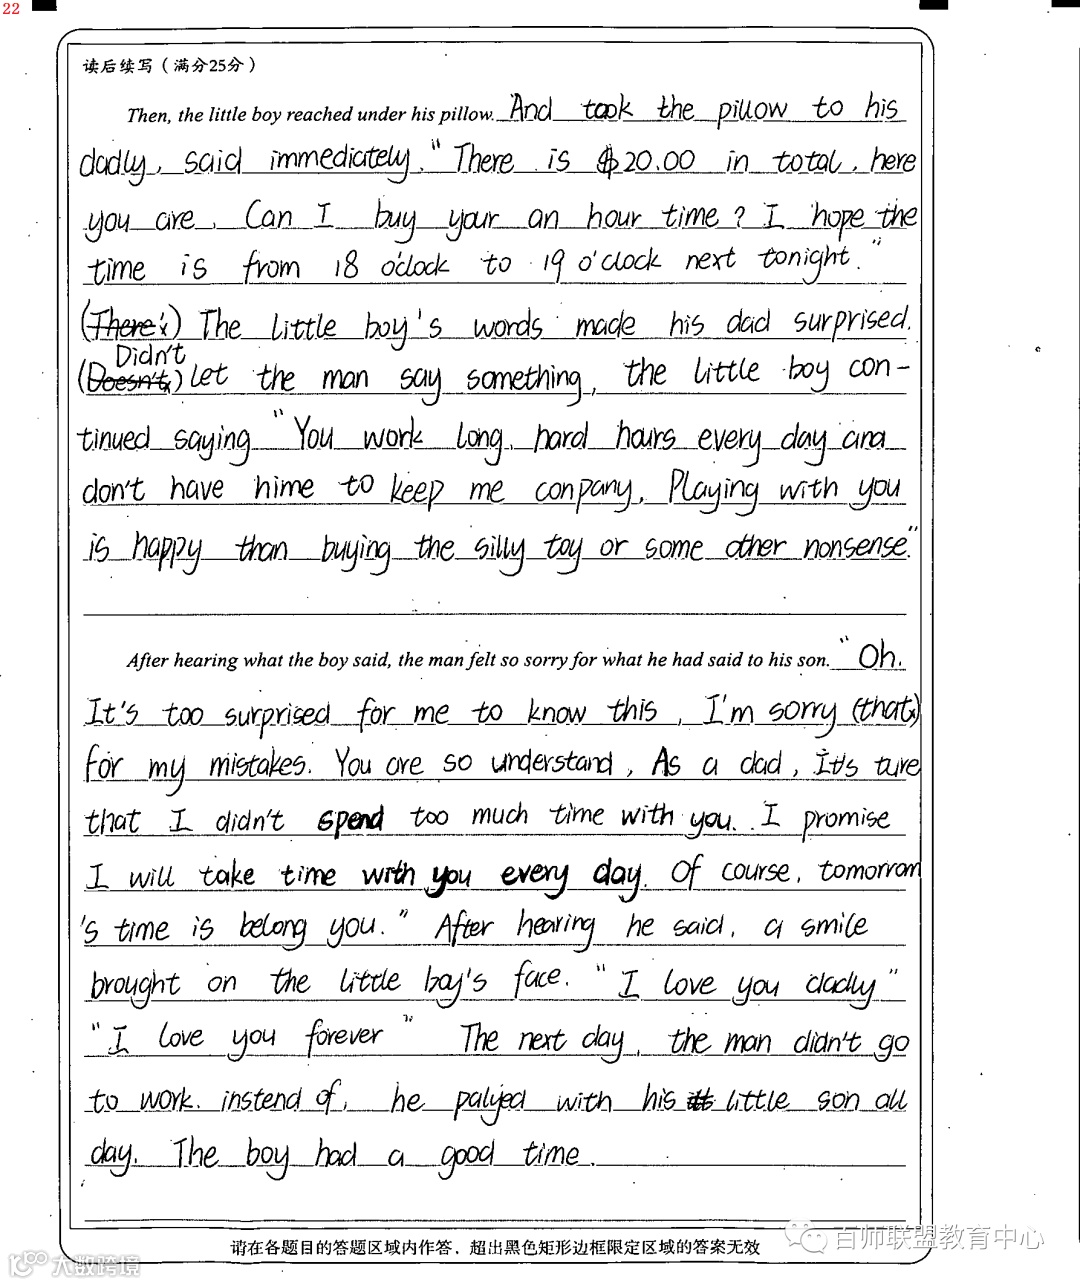 22
读后续写（满分25分）
Then, the little boy reached under his pillow. And took the pillow to his
dadly, said immediately, "There is $20.00 in total, here
you are, Can I buy your an hour time? I hope the
time is from 18 o'clock to 19 o'clock next tonight."
(There's) The little boy's words made his dad surprised.
Didn't
(Doesn't) let the man say something, the little boy con-
tinued saying "You work long, hard hours every day and
don't have hime to keep me conpany, Playing with you
is happy than buying the silly toy or some other nonsense."
After hearing what the boy said, the man felt so sorry for what he had said to his son. "Oh.
It's too surprised for me to know this, I'm sorry (that)
for my mistakes. You are so understand, As a dad, It's ture
that I didn't spend too much time with you. I promise
I will take time with you every day. Of course, tomorrom
's time is belong you." After hearing he said, a smile
brought on the little boy's face. "I love you dadly"
"I love you forever" The next day, the man didn't go
to work. instend of, he palyed with his little son all
day. The boy had a good time.
请在各题目的答题区域内作答，超出黑色矩形边框限定区域的答案无效
百师联盟教育中心
大数跨境